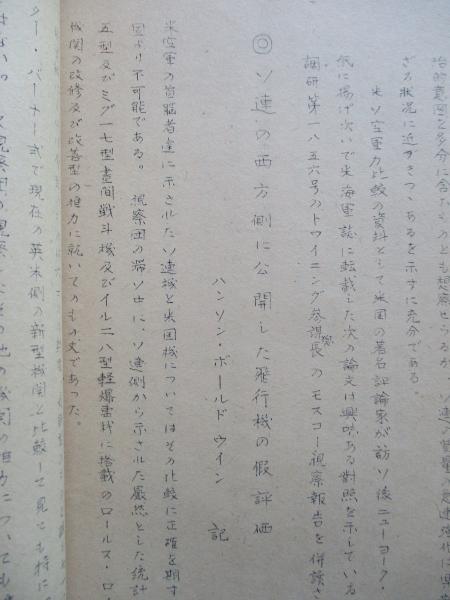 治的意図を多分に含むものとも想察せらるが、ソ連の質量の急速強化に
ざる状況に近づきつゝあるを示すに充分である。
米ソ空軍力比較の資料として米国の著名評論家が訪ソ後ニューヨーク・
紙に掲げ次いで米海軍誌に転載した次の論文は興味ある対照を示している
調研第一八五六号のトワイニング参謀総長のモスコー視察報告を併読さ
◎ソ連の西方側に公開した飛行機の假評価
ハンソン・ボールドウイン 記
米空軍の首脳者達に示されたソ連機と米国機についてはその比較に正確を期す
固より不可能である。視察団の滞ソ中に、ソ連側から示された厳然とした統計
五型及びミグ一七型昼間戦斗機及びイル二八型軽爆撃機に搭載のロールス・ロ
機関の改修及び改善型の推力に就いてのもの丈であった。
ター・バーナー式で現在の英米側の新型機関と比較して見ても特に
はない。視察団の視察したその他の機関の推力についても